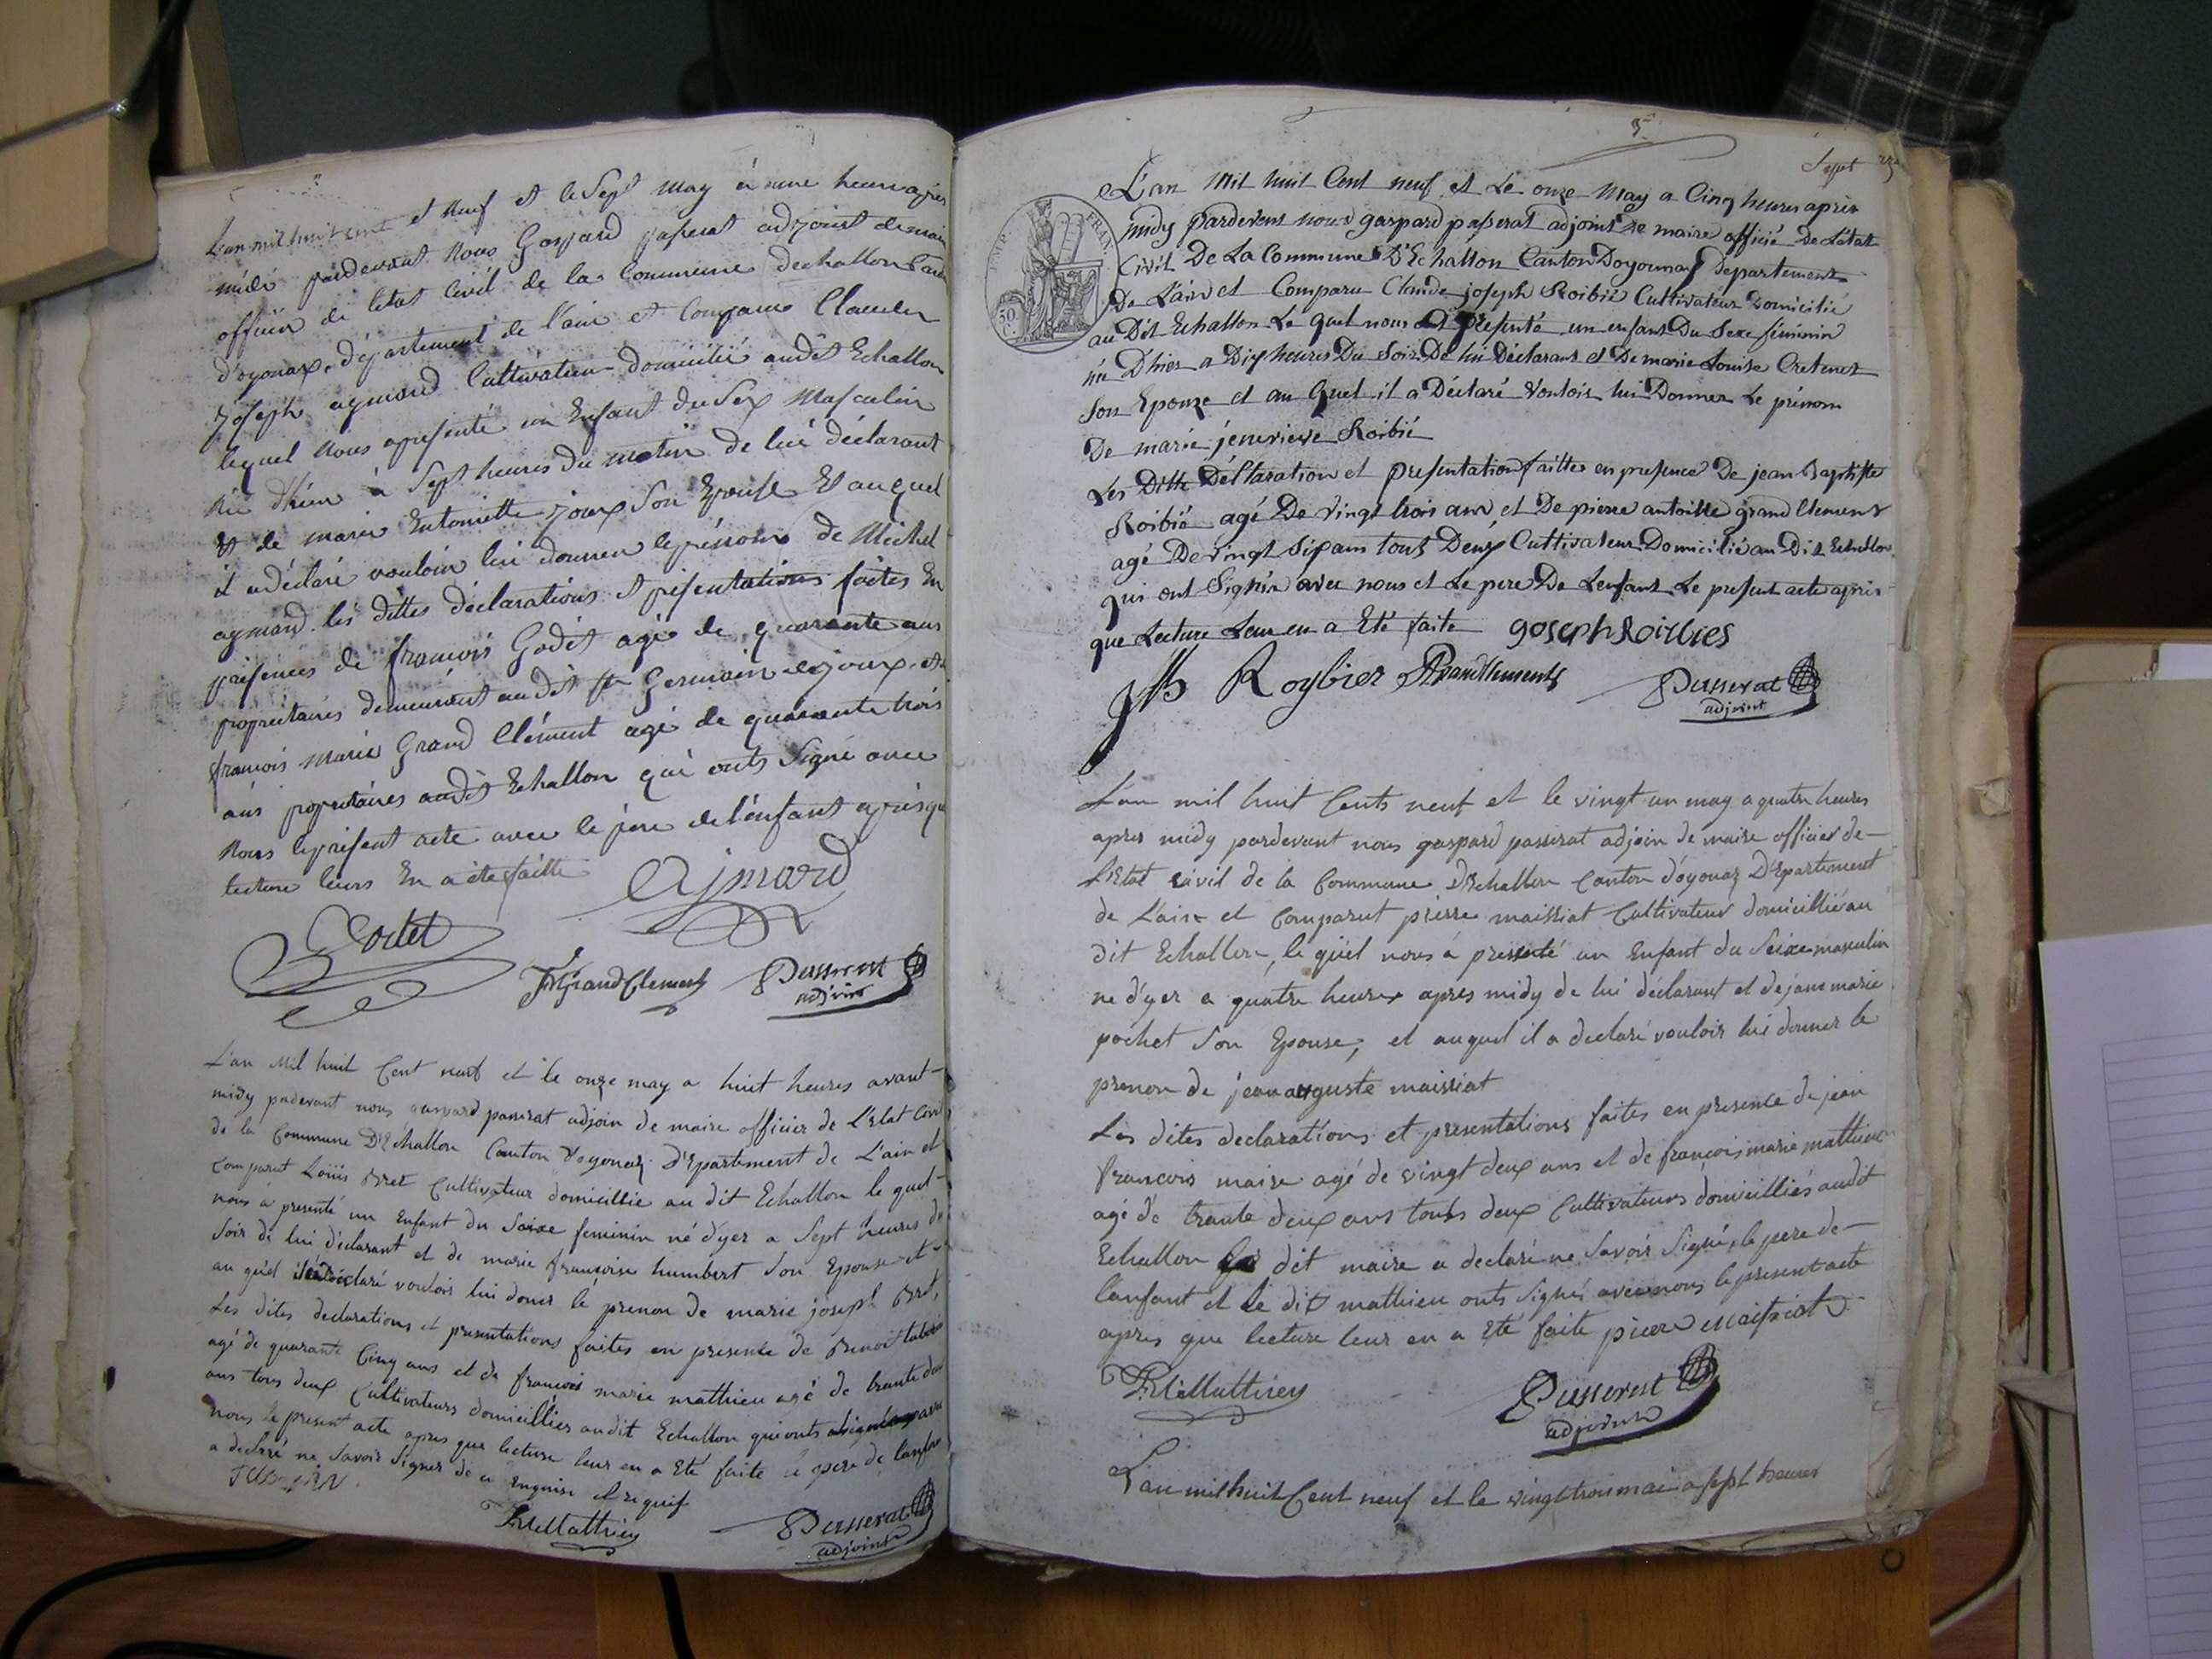 L'an mil huit cent et Neuf et le Sept may à une heure apres
midi pardevant Nous Gaspard passerat adjoint de maire
officier de letat Civil de la Commune dechallon Canton
d'oyonax, département de l'ain et Comparu Claude
Joseph aymard Cultivateur domicilié audit Echallon
lequel Nous apresenté un Enfant du Sex Masculin
Né d'hier à Sept heures du matin de lui déclarant
Et de marie Entoinette joux Son Epouse Et auquel
il adéclaré vouloir lui donner leprénom de Michel
aymard les dittes déclarations et présentations faites En
présences de françois Godet agé de quarante ans
propriétaires demeurant audit st Germain dejoux et
françois Marie Grand Clément agé de quarante trois
ans propriétaires audit Echallon qui onts Signé avec
Nous leprésent acte avec le père del'énfant après que
lecture leurs En a été faitte
Aymard
Godet
FM GrandClement Passerat
adjoint
L'an Mil huit Cent neuf et le onze may a huit heures avant
midy pardevant nous gaspard passerat adjoin de maire officier de L'Etat Civil
de la Commune D'Echallon Canton d'oyonaz D'Epartement de L'ain et
Comparut Loüis Bret Cultivateur domicillie au dit Echallon le quel
nous à presenté un Enfant du Seixe feminin né d'yer a Sept heures du
Soir de lui déclarant et de marie françoise humbert Son Epouse et
au quel il a déclaré vouloir lui doner le prenon de marie joseph Bret,
Les dites declarations et presentations faites en presence de Benoit tabouin
agé de quarante Cinq ans et de françois marie mathieu agé de trante deux
ans tous deux Cultivateurs domicilliés audit Echallon qui onts
nous le present acte apres que lecture leur en a Eté faite le pere de lanfant
a declaré ne Savoir Signer de ce Enquise et requis
FMMathieu
Passerat
adjoint
5
Sept
L'an Mil huit Cent neuf et Le onze May a Cinq heures après
midy pardevant nous gaspard passerat adjoint De maire officié De L'état
Civil De La Commune D'Echallon Canton Doyonnax Departement
De L'ain et Comparu Claude joseph Roibié Cultivateur Domicilié
au Dit Echallon Le quel nous a présenté un enfant Du Sexe féminin
née D'hier a Dix heures Du Soir De lui Déclarant et De marie Louise Cretenet
Son Epouse et au quel il a Déclaré Vouloir lui Donner Le prénom
De marie jenevieve Roibié
Les Ditte Déclaration et presentation faitte en presence De jean Baptiste
Roibié agé De Vingt trois ans et De pierre antoine grand Clement
agé De Vingt Six ans tout Deux Cultivateur Domicilié au Dit Echallon
qui ont Signér avec nous et Le pere De Lenfant Le present acte après
que Lecture Leur en a Eté faite goseph Roibies
JB Roybier PAGrandClement Passerat
adjoint
L'an mil huit Cents neuf et le vingt un may a quatre heures
apres midy pardevant nous gaspard passerat adjoin de maire officier de
L'Etat Civil de la Commune D'Echallon Canton d'oyonaz D'Epartement
de L'ain et Comparut pierre maissiat Cultivateur domicillié au
dit Echallon, le quel nous à presenté un Enfant du Seixe masculin
ne d'yer a quatre heures apres midy de lui déclarant et de jane marie
pochet Son Epouse, et auquel il a declaré vouloir lui donner le
prenon de jean auguste maissiat
Les dites declarations et presentations faites en presence de jean
francois maire agé de vingt deux ans et de françois marie mathieu
agé de trante deux ans touts deux Cultivateurs domicilliés audit
Echallon le dit maire a declaré ne Savoir Signé, le pere de
lanfant et le dit mathieu onts Signés avec nous le present acte
apres que lecture leur en a Eté faite piere maissiat
FMMathieu
Passerat
adjoint
L'an mil huit Cent neuf et le vingt trois mai a sept heures